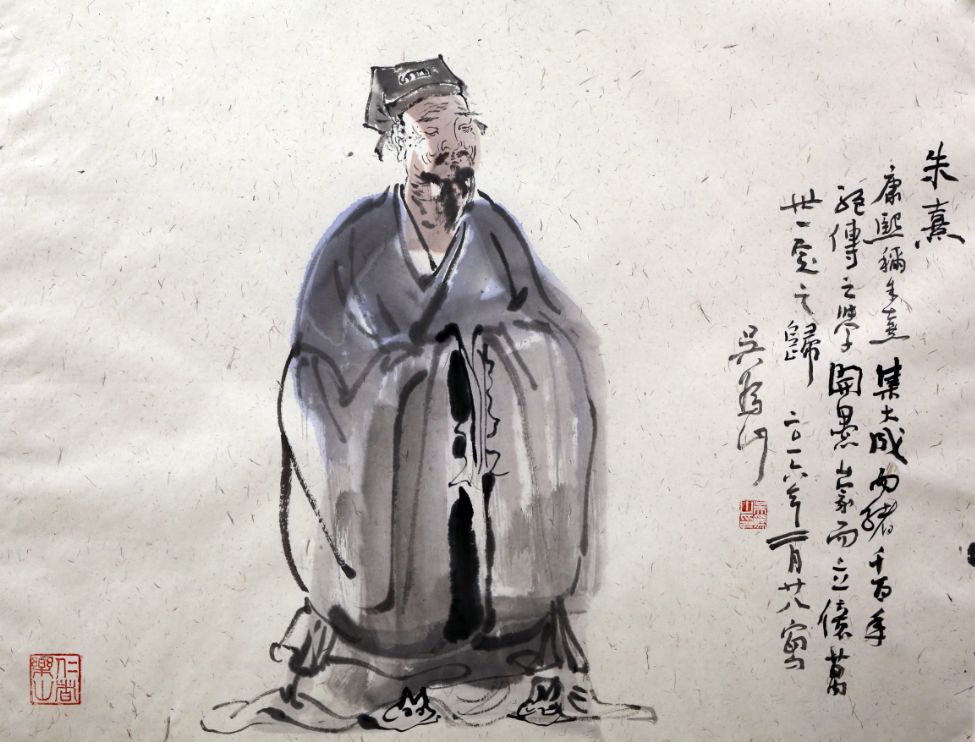 朱熹
康熙稱朱熹集大成而緒千百年
絕傳之學開愚蒙而立億萬
世一定之歸 二〇一六年二月廿八寫
吳為山
仁者樂山